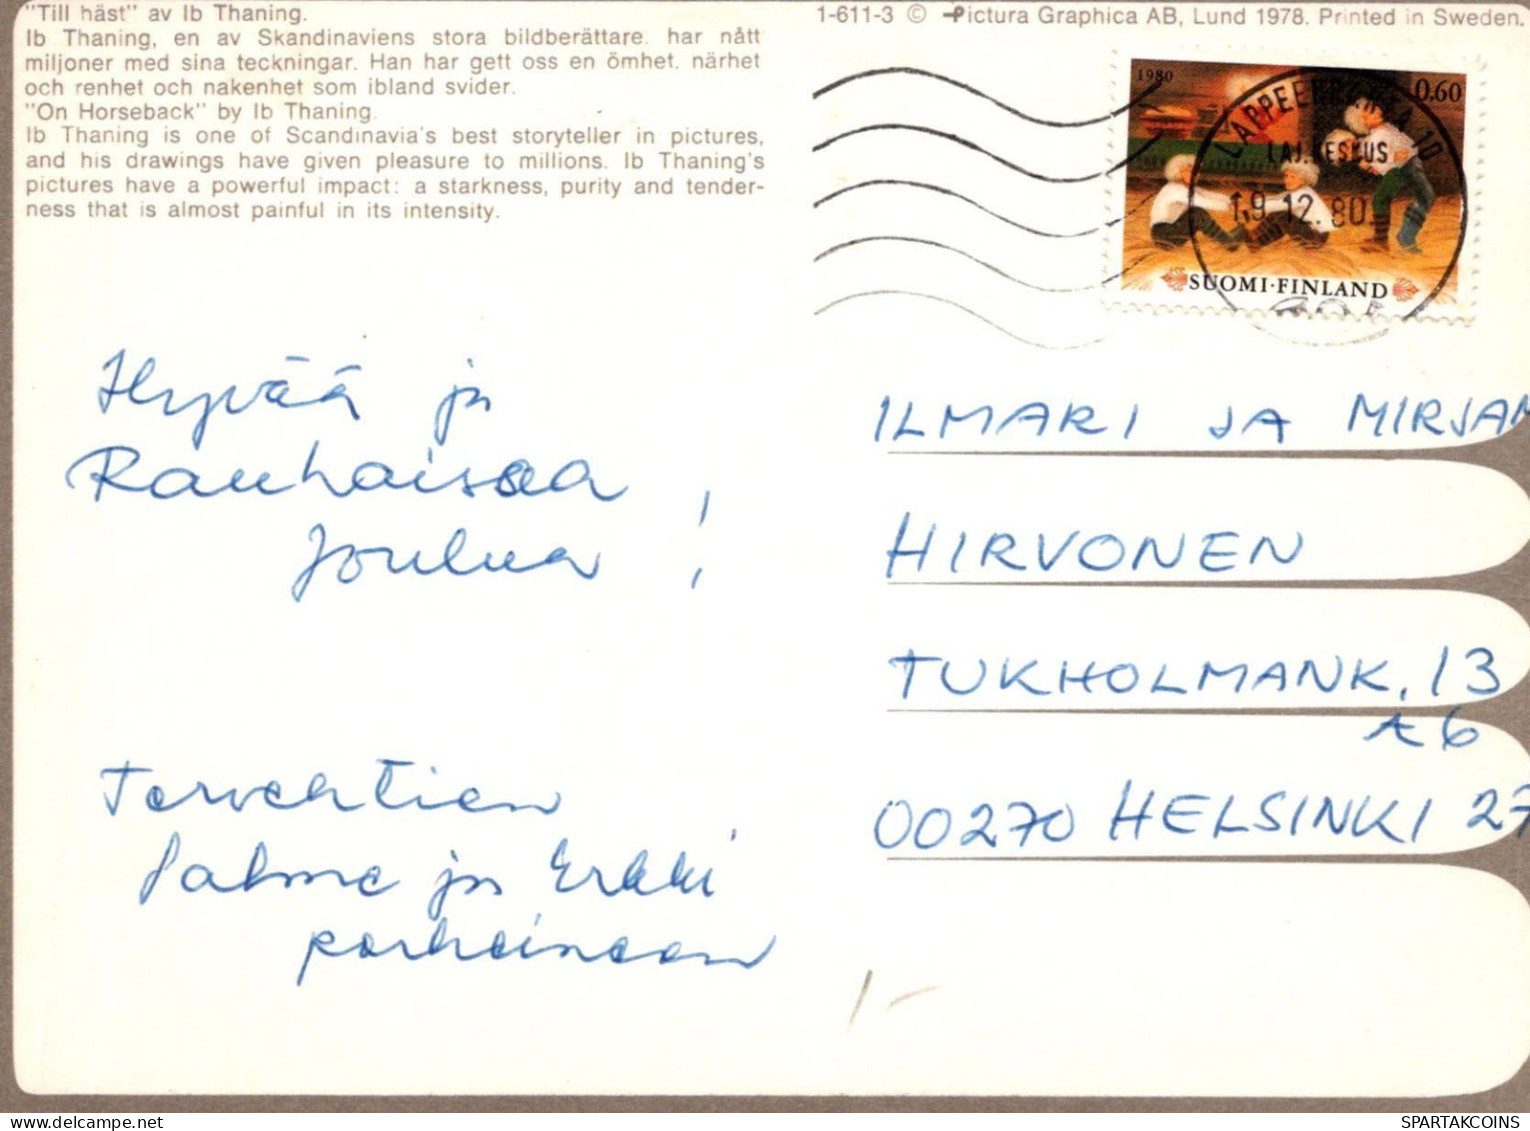 "Till häst" av Ib Thaning.
Ib Thaning, en av Skandinaviens stora bildberättare. har nått
miljoner med sina teckningar. Han har gett oss en ömhet. närhet
och renhet och nakenhet som ibland svider.
"On Horseback" by Ib Thaning.
Ib Thaning is one of Scandinavia's best storyteller in pictures,
and his drawings have given pleasure to millions. Ib Thaning's
pictures have a powerful impact: a starkness, purity and tender-
ness that is almost painful in its intensity.
1-611-3 © Pictura Graphica AB, Lund 1978. Printed in Sweden.
1980
0.60
LAPPEENRANTA 10
LAJ.KESKUS
19.12.80
SUOMI·FINLAND
Hyvää ja
Rauhaisaa
Joulua !
Tervehtien
Salme ja Erkki
perheineen
ILMARI JA MIRJAM
HIRVONEN
TUKHOLMANK. 13
A 6
00270 HELSINKI 27
1-
SPARTAKCOINS